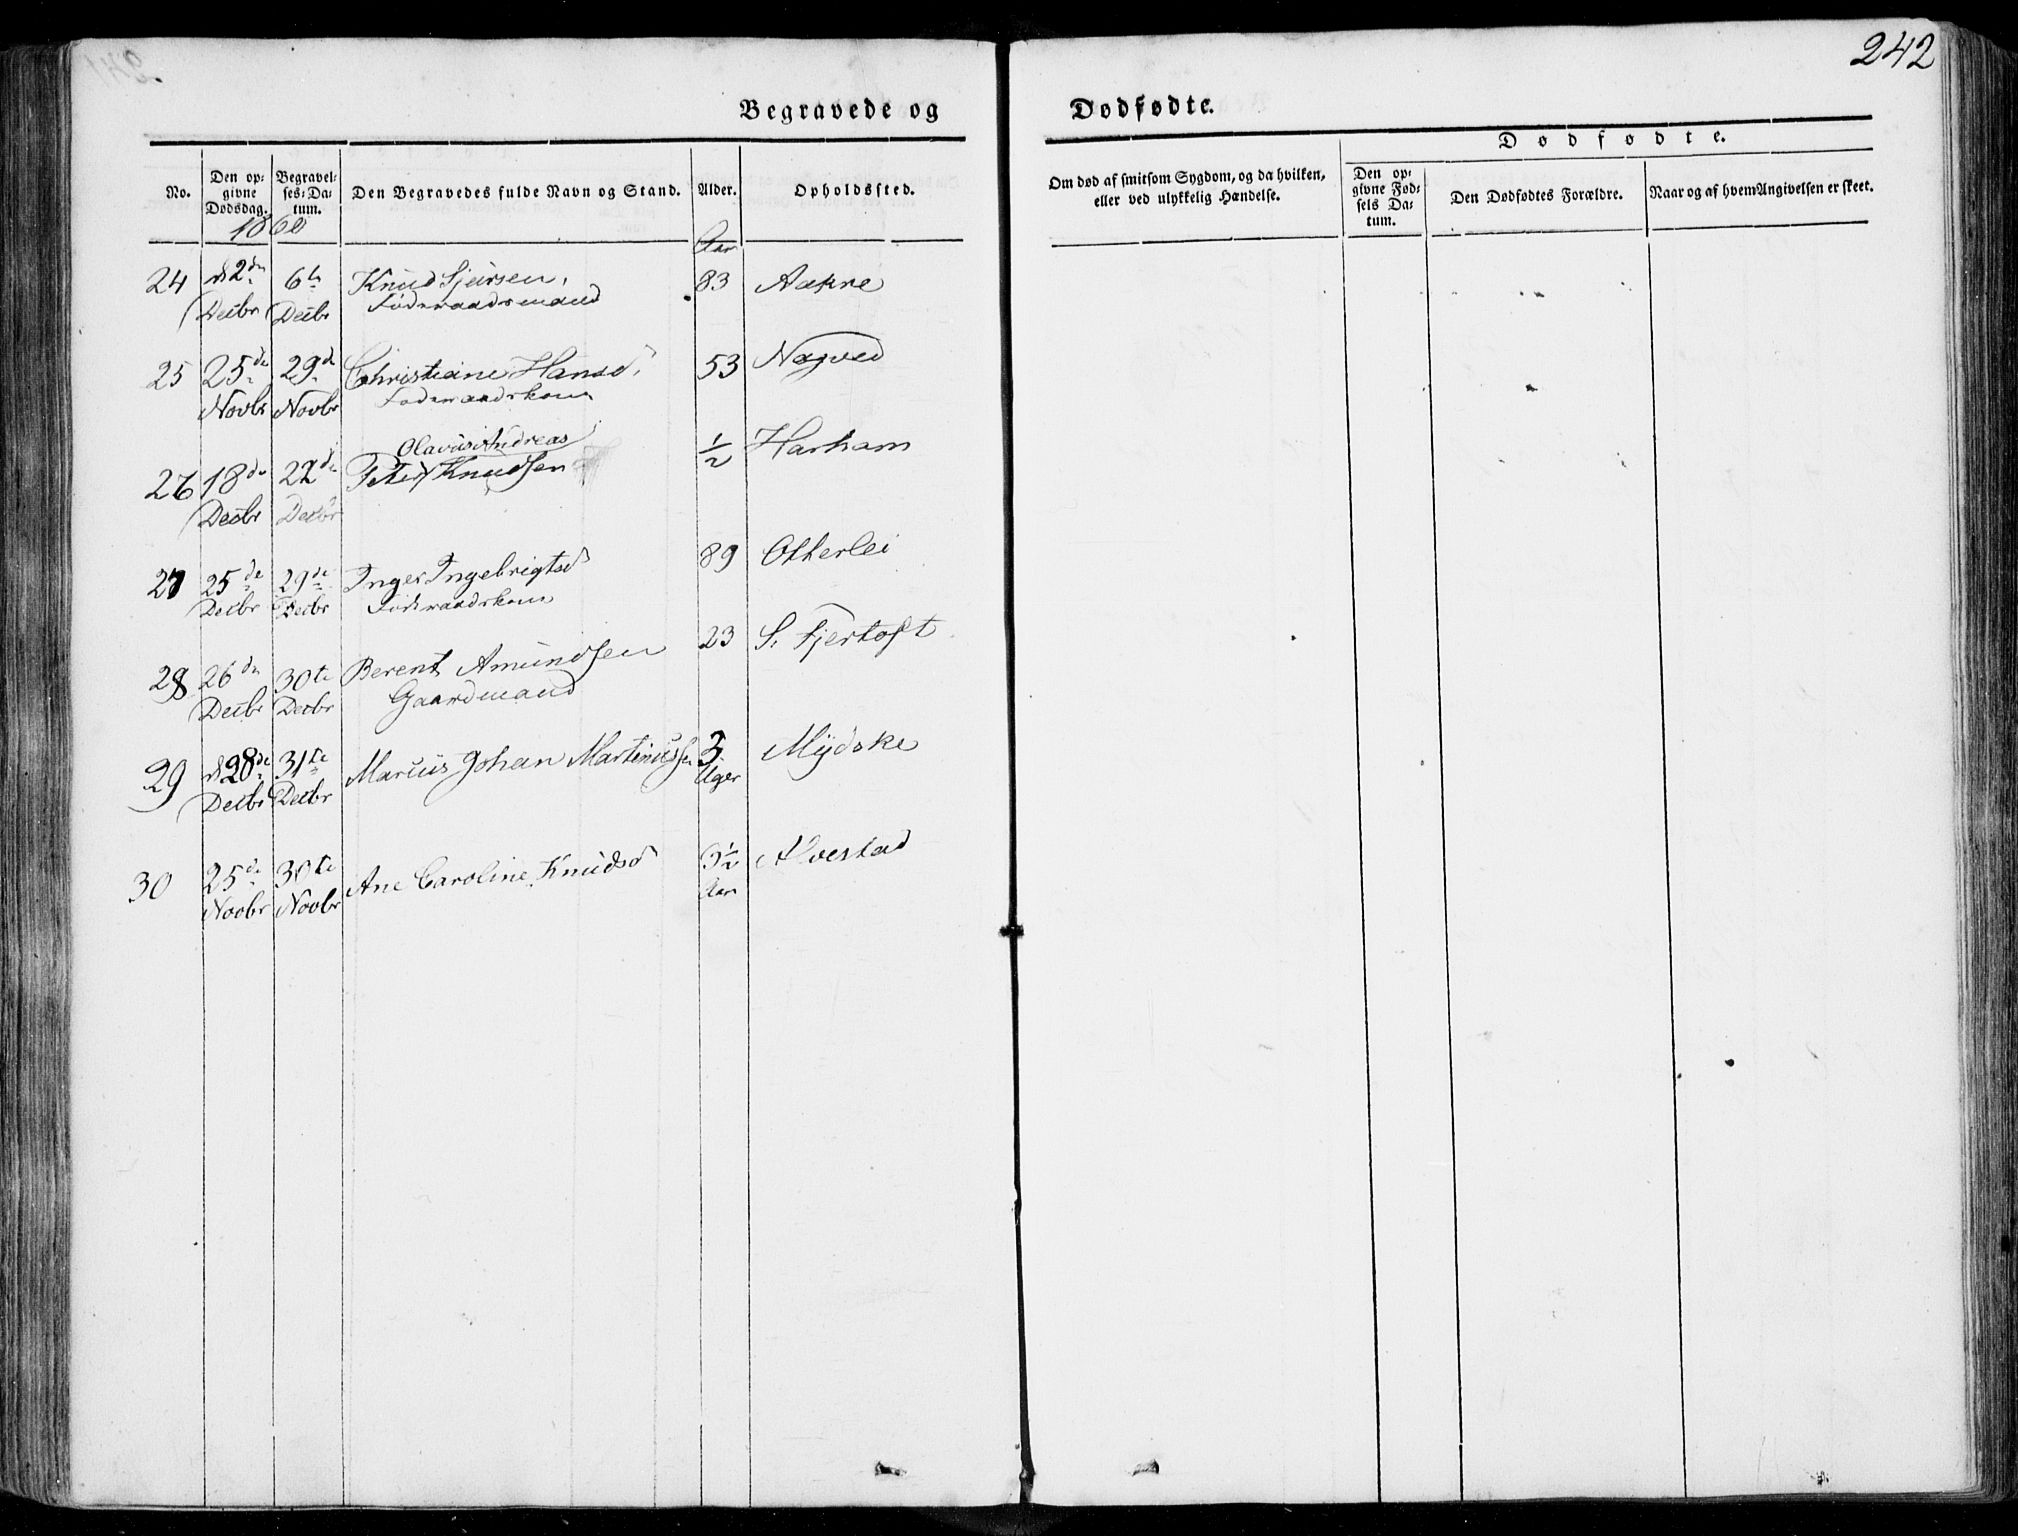 242
Begravede og Dødfødte.
Dødfødte.
No.
Den op-
givne
Dødsdag.
Begravel-
ses-Da-
tum.
Den Begravedes fulde Navn og Stand.
Alder.
Opholdssted.
Om død af smitsom Sygdom, og da hvilken,
eller ved ulykkelig Hændelse.
Den op-
givne Fød-
sels Da-
tum.
Den Dødfødtes Forældre.
Naar og af hvem Angivelsen er skeet.
1860
Aar
24 d 2den 6te Knud Sjursen, 83 Aakre
Decbr Decbr Føderaadsmand
25 25de 29de Christiane Hansd, 53 Nogved
Novbr Novbr Føderaadskone
Olavus Andreas
26 18de 22de Peter Knudsen 1/2 Harham
Decbr Decbr
27 25de 29de Inger Ingebrigtsd 89 Otterlei
Decbr Decbr Føderaadskone
28 26de 30te Berent Amundsen 23 S. Fjertoft
Decbr Decbr Gaardmand
29 d 28de 31te Marius Johan Martinussen 3 Mydske
Decbr Decbr Uger
30 25de 30te Ane Caroline Knudsd 3 1/2 Alvestad
Novbr Novbr Aar